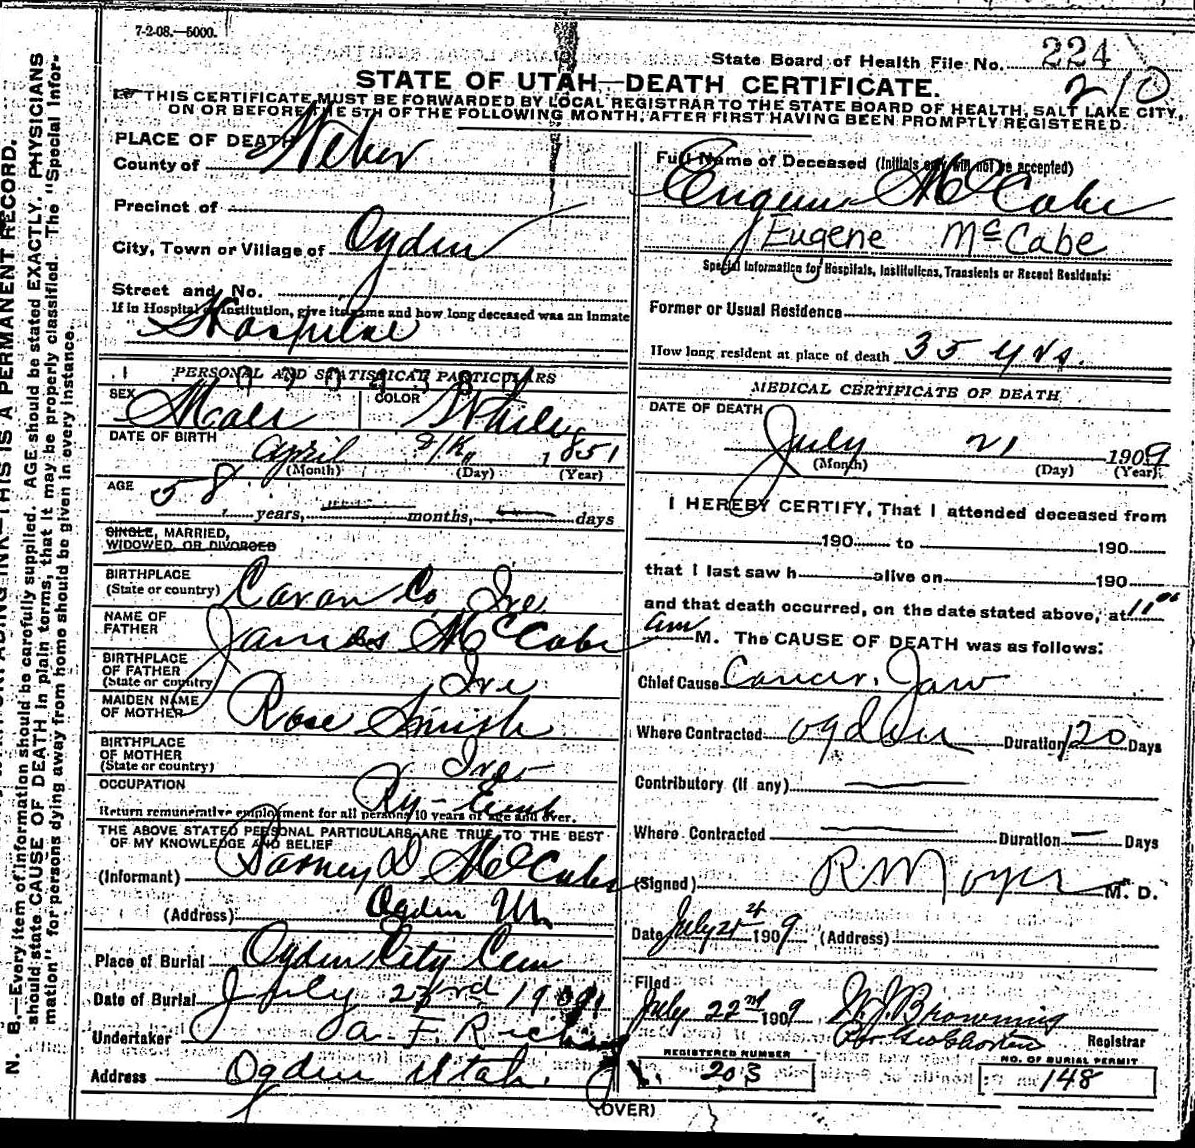 7-2-08.—5000.
State Board of Health File No. 224
210
STATE OF UTAH—DEATH CERTIFICATE.
THIS CERTIFICATE MUST BE FORWARDED BY LOCAL REGISTRAR TO THE STATE BOARD OF HEALTH, SALT LAKE CITY,
ON OR BEFORE THE 5TH OF THE FOLLOWING MONTH, AFTER FIRST HAVING BEEN PROMPTLY REGISTERED.
N. B.—Every item of information should be carefully supplied. AGE should be stated EXACTLY. PHYSICIANS
should state CAUSE OF DEATH in plain terms, that it may be properly classified. The "Special Infor-
mation" for persons dying away from home should be given in every instance.
THIS IS A PERMANENT RECORD.
PLACE OF DEATH
County of Weber
Precinct of
City, Town or Village of Ogden
Street and No.
If in Hospital or Institution, give its name and how long deceased was an Inmate
Hospital
PERSONAL AND STATISTICAL PARTICULARS
SEX Male COLOR White
DATE OF BIRTH April 1851
(Month) (Day) (Year)
AGE
58 years, months, days
SINGLE, MARRIED,
WIDOWED, OR DIVORCED
BIRTHPLACE
(State or country) Cavan Co Ire
NAME OF
FATHER James McCabe
BIRTHPLACE
OF FATHER
(State or country) Ire
MAIDEN NAME
OF MOTHER Rose Smith
BIRTHPLACE
OF MOTHER
(State or country) Ire
OCCUPATION Ry-Emp
Return remunerative employment for all persons 10 years of age and over.
THE ABOVE STATED PERSONAL PARTICULARS ARE TRUE TO THE BEST
OF MY KNOWLEDGE AND BELIEF
(Informant) Barney D. McCabe
(Address) Ogden Ut
Place of Burial Ogden City Cem
Date of Burial July 23rd 1909
Undertaker
Address Ogden Utah.
Full Name of Deceased (Initials only will not be accepted)
Eugene McCabe
Eugene McCabe
Special Information for Hospitals, Institutions, Transients or Recent Residents:
Former or Usual Residence
How long resident at place of death 35 yrs.
MEDICAL CERTIFICATE OF DEATH
DATE OF DEATH
July 21 1909
(Month) (Day) (Year)
I HEREBY CERTIFY, That I attended deceased from
190 to 190
that I last saw h alive on 190
and that death occurred, on the date stated above, at 11 00
am M. The CAUSE OF DEATH was as follows:
Chief Cause Cancer, Jaw
Where Contracted Ogden Duration 120 Days
Contributory (if any)
Where Contracted Duration Days
(Signed) M. D.
Date July 1909 (Address)
Filed
July 22nd 1909 Browning
Registrar
REGISTERED NUMBER
203
NO. OF BURIAL PERMIT
148
(OVER)